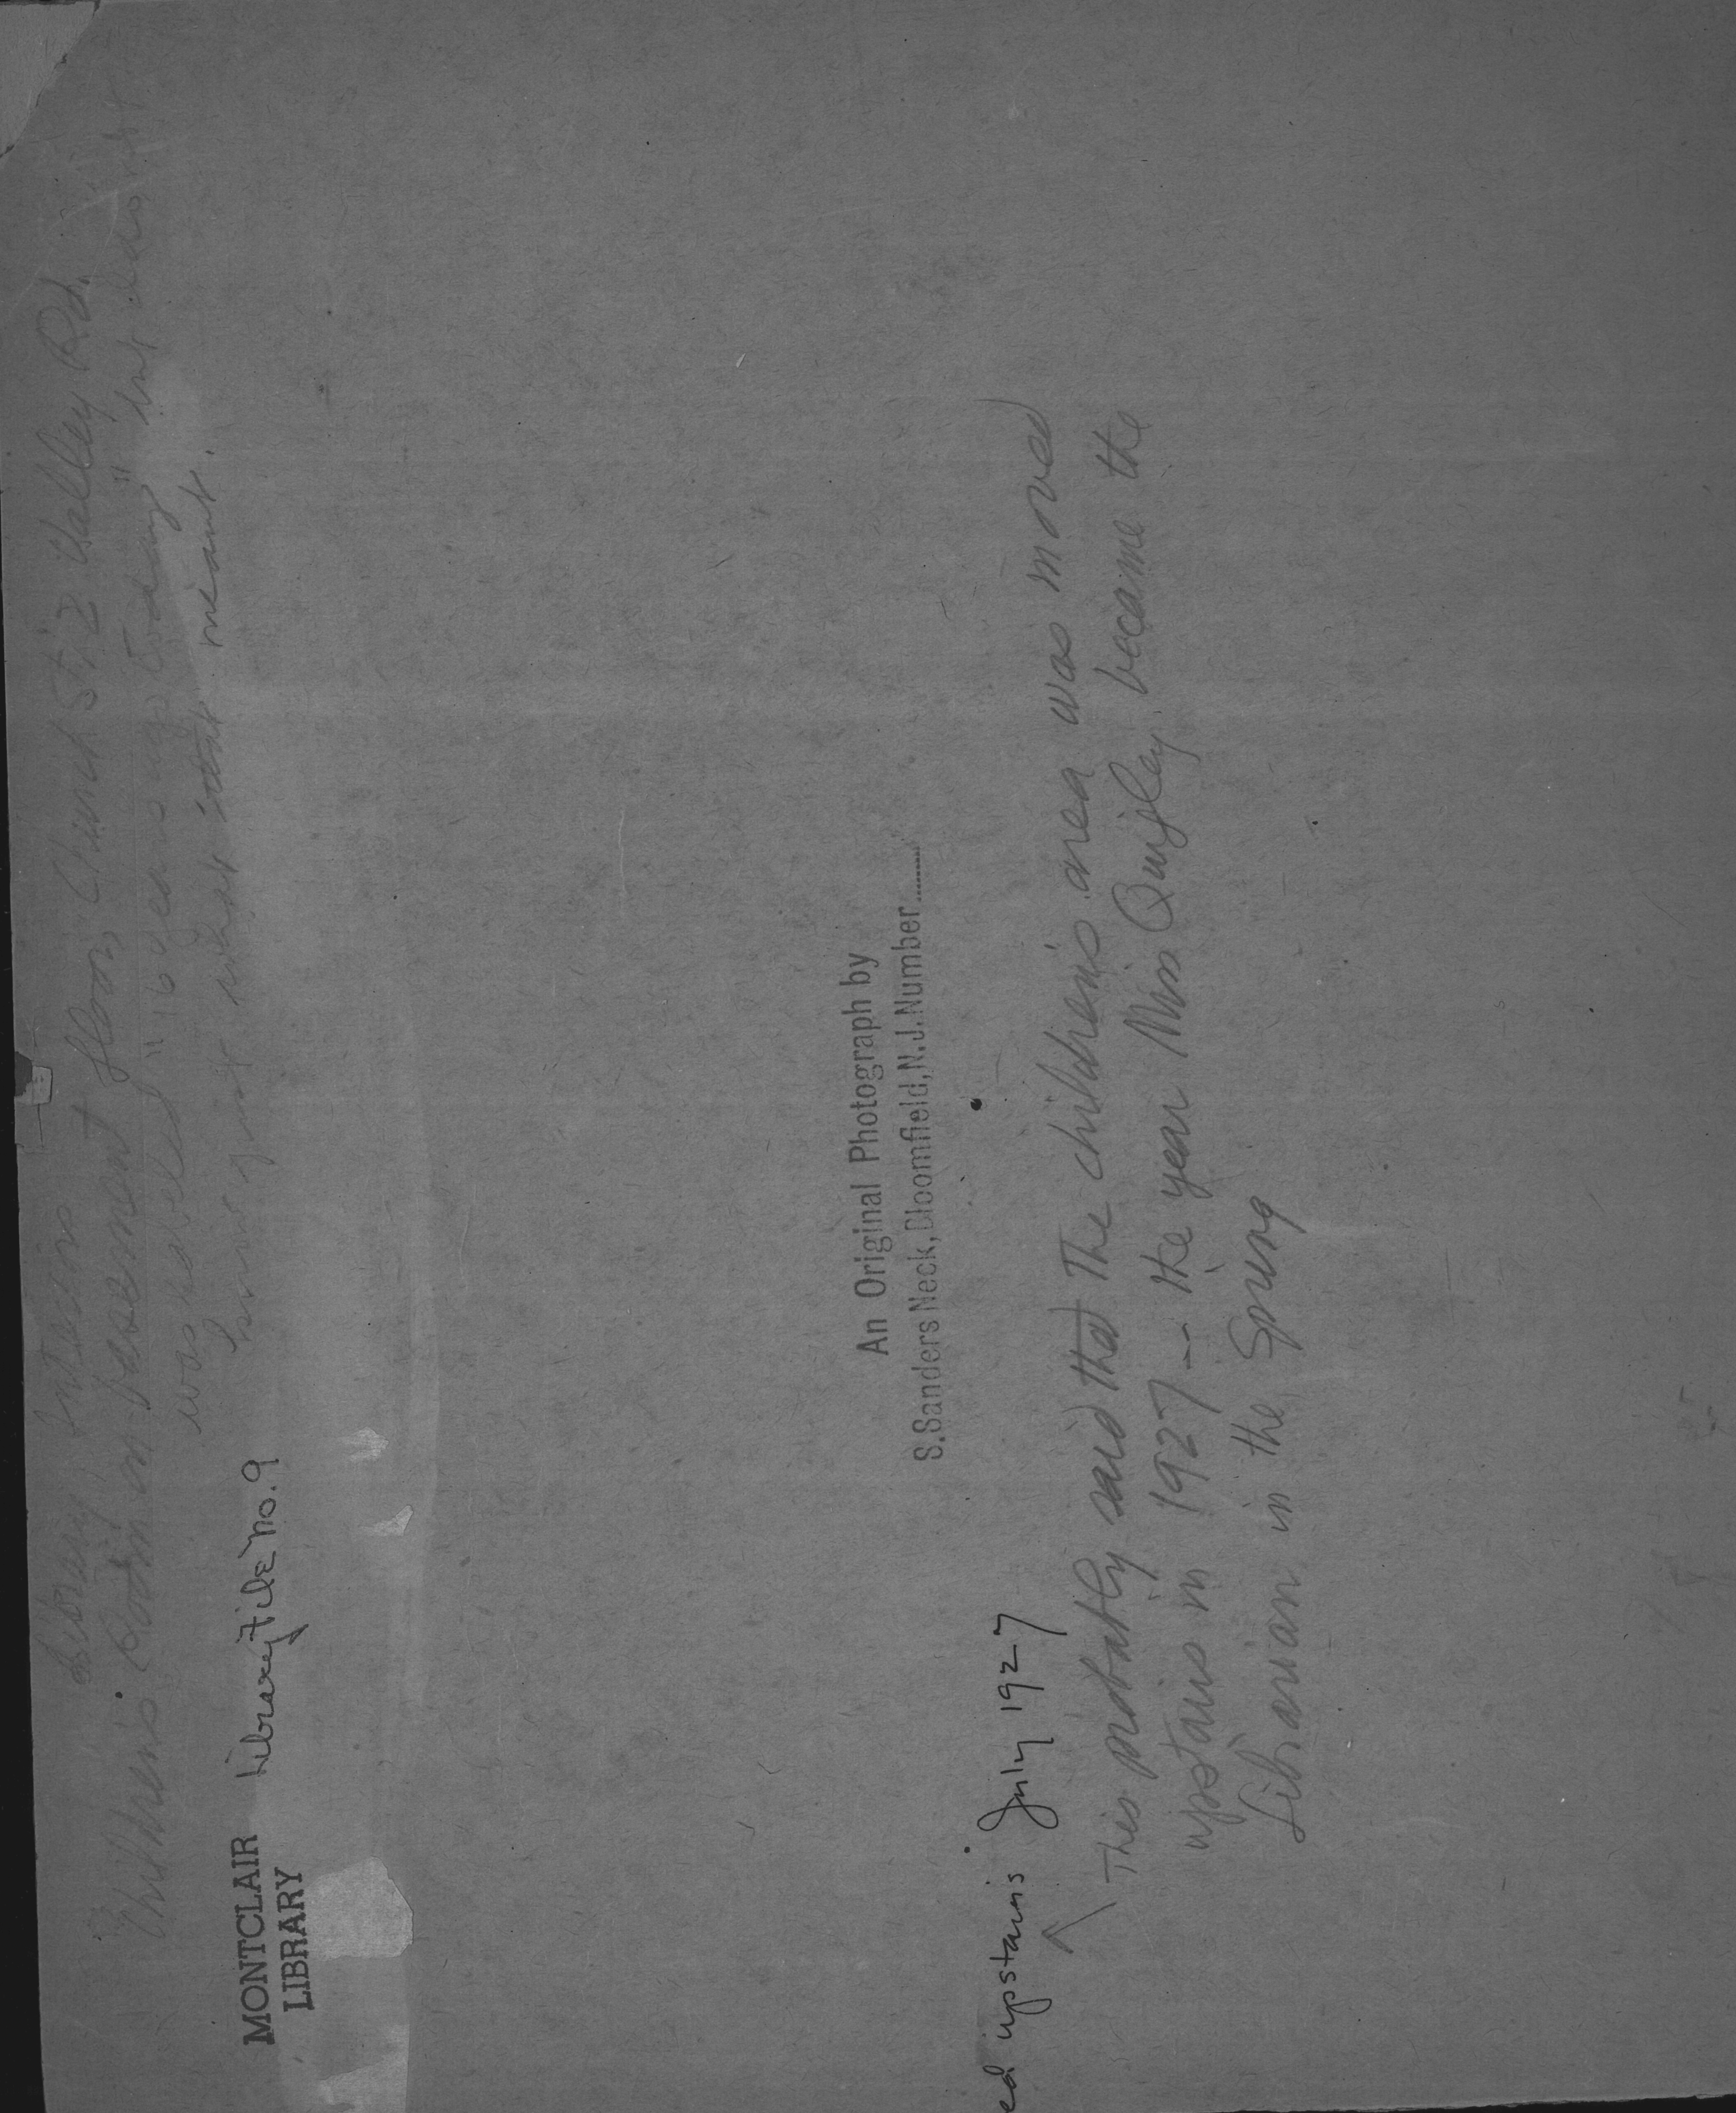 Library Interior
Children's Room on basement floor, Church St. & Valley Rd.
was labeled "16 years ago today" but don't
know just what that meant.
MONTCLAIR
LIBRARY
Library File No. 9
An Original Photograph by
S.Sanders Neck, Bloomfield, N.J. Number........
ed upstairs July 1927
This probably said that The children's area was moved
upstairs in 1927 -- the year Miss Quigley became the
Librarian in the Spring